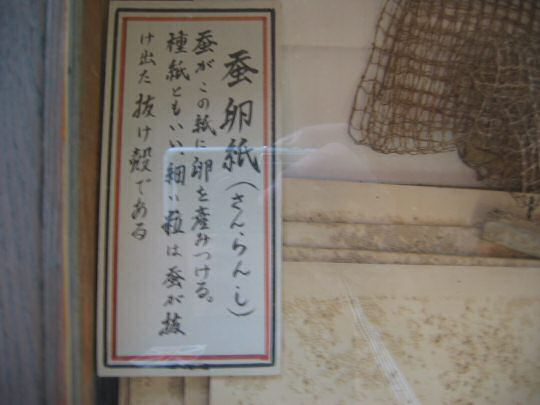 蚕卵紙(さんらんし)
蚕がこの紙に卵を産みつける。
種紙ともいい、細い粒は蚕が抜
け出た抜け殻である